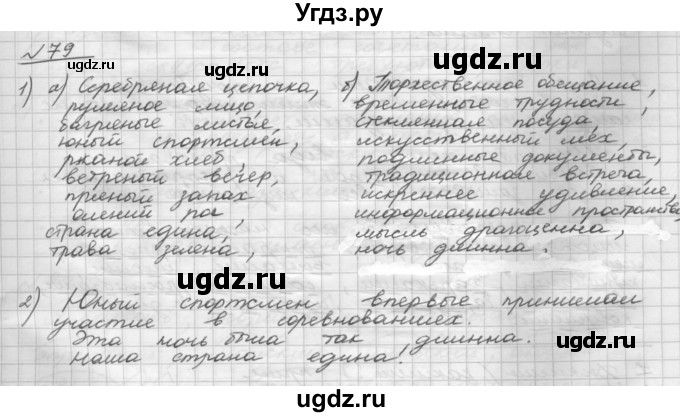 Угдз.ру
№79
1) а) Серебряная цепочка, б) Торжественное обещание,
румяное лицо, временные трудности,
багряные листья, стеклянная посуда,
юный спортсмен, искусственный мех,
ржаной хлеб, подлинные документы,
ветреный вечер, традиционная встреча,
пряный запах искреннее удивление,
олений рог, информационное пространство,
страна едина, мысль драгоценна,
трава зелена, ночь длинна.
ugdz.ru ugdz.ru
ugdz.ru ugdz.ru
2) Юный спортсмен впервые принимал
участие в соревнованиях.
Эта ночь была так длинна.
Наша страна едина!
ugdz.ru ugdz.ru